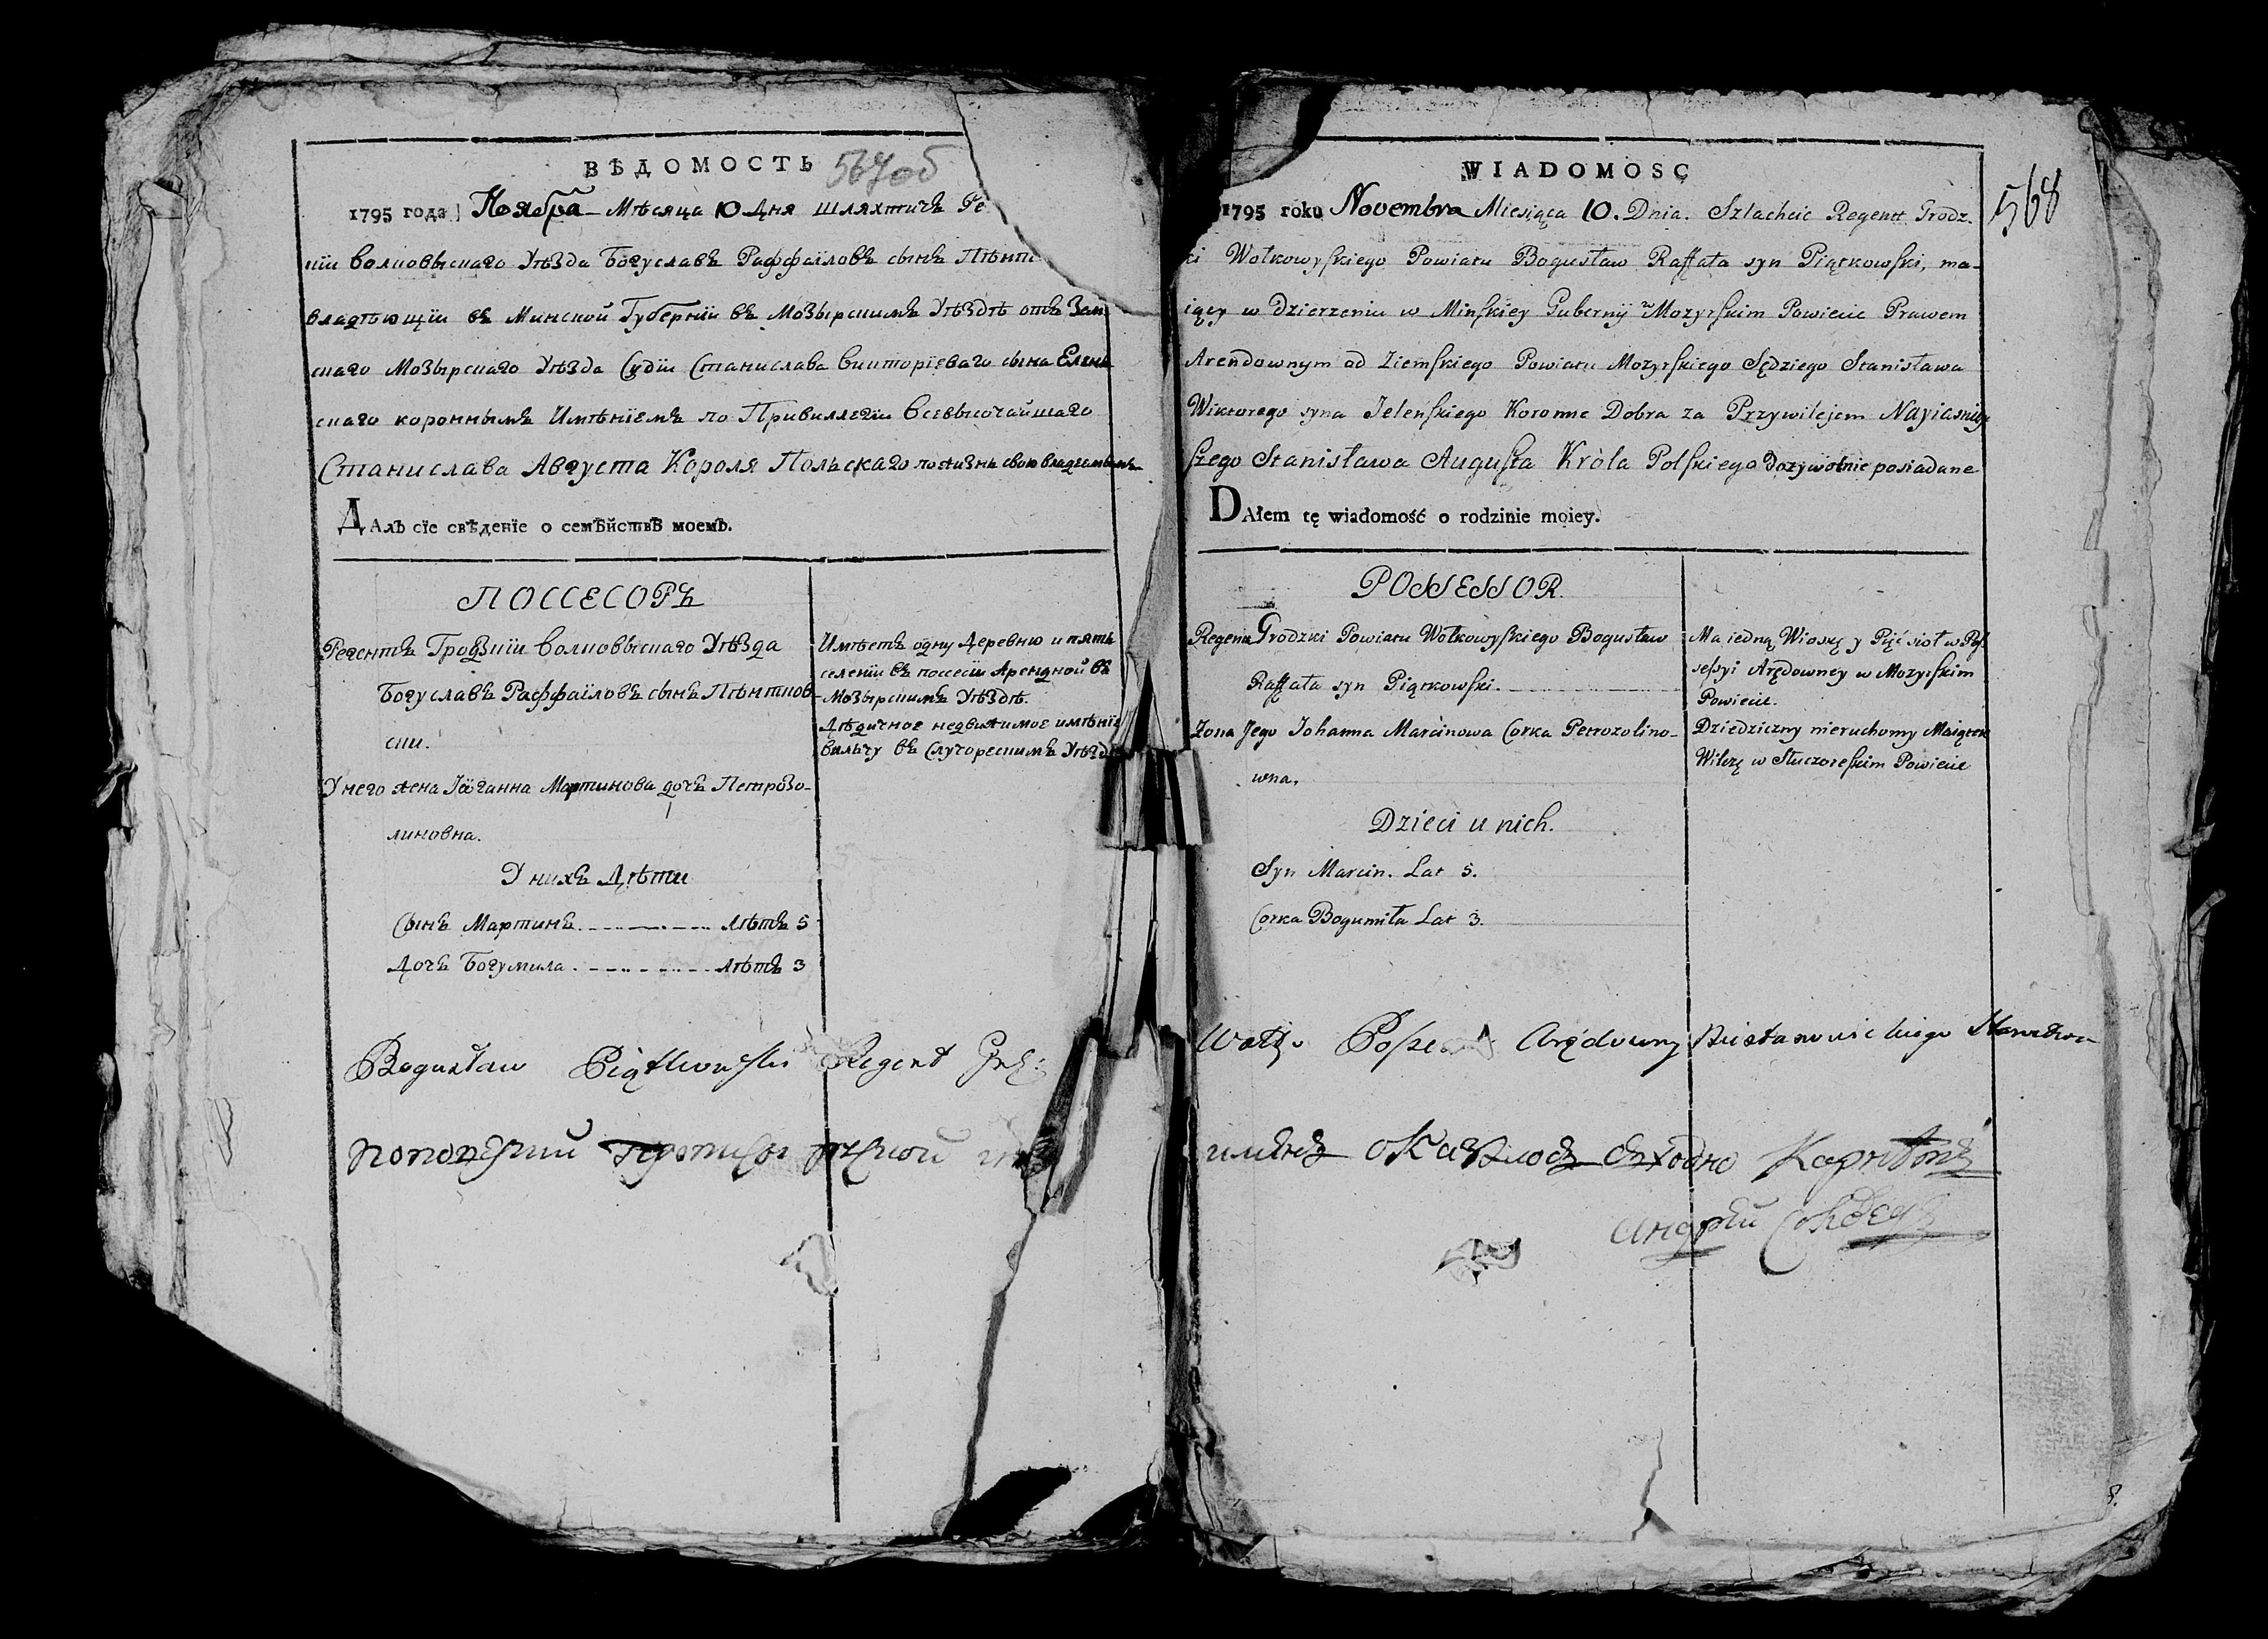 ВѢДОМОСТЬ
567об
1795 года Ноября Мѣсяца 10 Дня шляхтичъ Ре
ціи Волковыскаго Уѣзда Богуславъ Раффаиловъ сынъ Пѣнтк
владѣющіи въ Минской Губерніи въ Мозырскимъ Уѣздѣ отъ Зем
скаго Мозырскаго Уѣзда Судіи Станислава Викторіеваго сына Елен
скаго короннымъ Имѣніемъ по Привиллегіи Всевысочайшаго
Станислава Августа Короля Польскаго по жизнь свою
Далъ сіе свѣденіе о семѣйствѣ моемъ.
ПОССЕСОРЪ
Регентъ Гродзкіи Волковыскаго Уѣзда
Богуславъ Раффаиловъ сынъ Пѣнтков
ски.
У него жена Іоганна Мартинова дочь Петрозо-
линовна.
У нихъ Дѣти
Сынъ Мартинъ. Лѣтъ 5
Дочь Богумила. Лѣтъ 3
Имѣетъ одну Деревню и пять
селеніи въ посесіи Арендной въ
Мозырскимъ Уѣздѣ.
Дѣдичное недвижимое имѣніе
Вильчу въ Случорескимъ Уѣздѣ
Bogusław Piątkowski Regent Grdz:
WIADOMOSC
568
1795 roku Novembra Miesiąca 10. Dnia. Szlachcic Regent Grodz-
ki Wołkowyskiego Powiatu Bogusław Raffała syn Piątkowski, ma-
iący w Dzierzeniu w Minskiey Gubernij w Mozyrskim Powiecie Prawem
Arendownym od Ziemskiego Powiatu Mozyrskiego Sędziego Stanisława
Wiktorego syna Jelenskiego Koronne Dobra za Przywilejem Nayiasniey
szego Stanisława Augusta Kròla Polskiego Dożywotnie posiadane
DAłem tę wiadomość o rodzinie moiey.
POSSESSOR.
Regent Grodzki Powiatu Wołkowyskiego Bogusław
Raffała syn Piątkowski.
Zona Jego Johanna Marcinowa Corka Petrozolino-
wna.
Dzieci u nich.
Syn Marcin. Lat 5.
Corka Bogumiła Lat 3.
Ma iedną Wioskę y Pięć sioł w Pos
sessyi Arędowney w Mozyrskim
Powiecie.
Dziedziczny nieruchomy Maiątek
Wilczę w Słuczoreskim Powiecie
Arędowny
оказалось сходно Капитанъ
Андрей